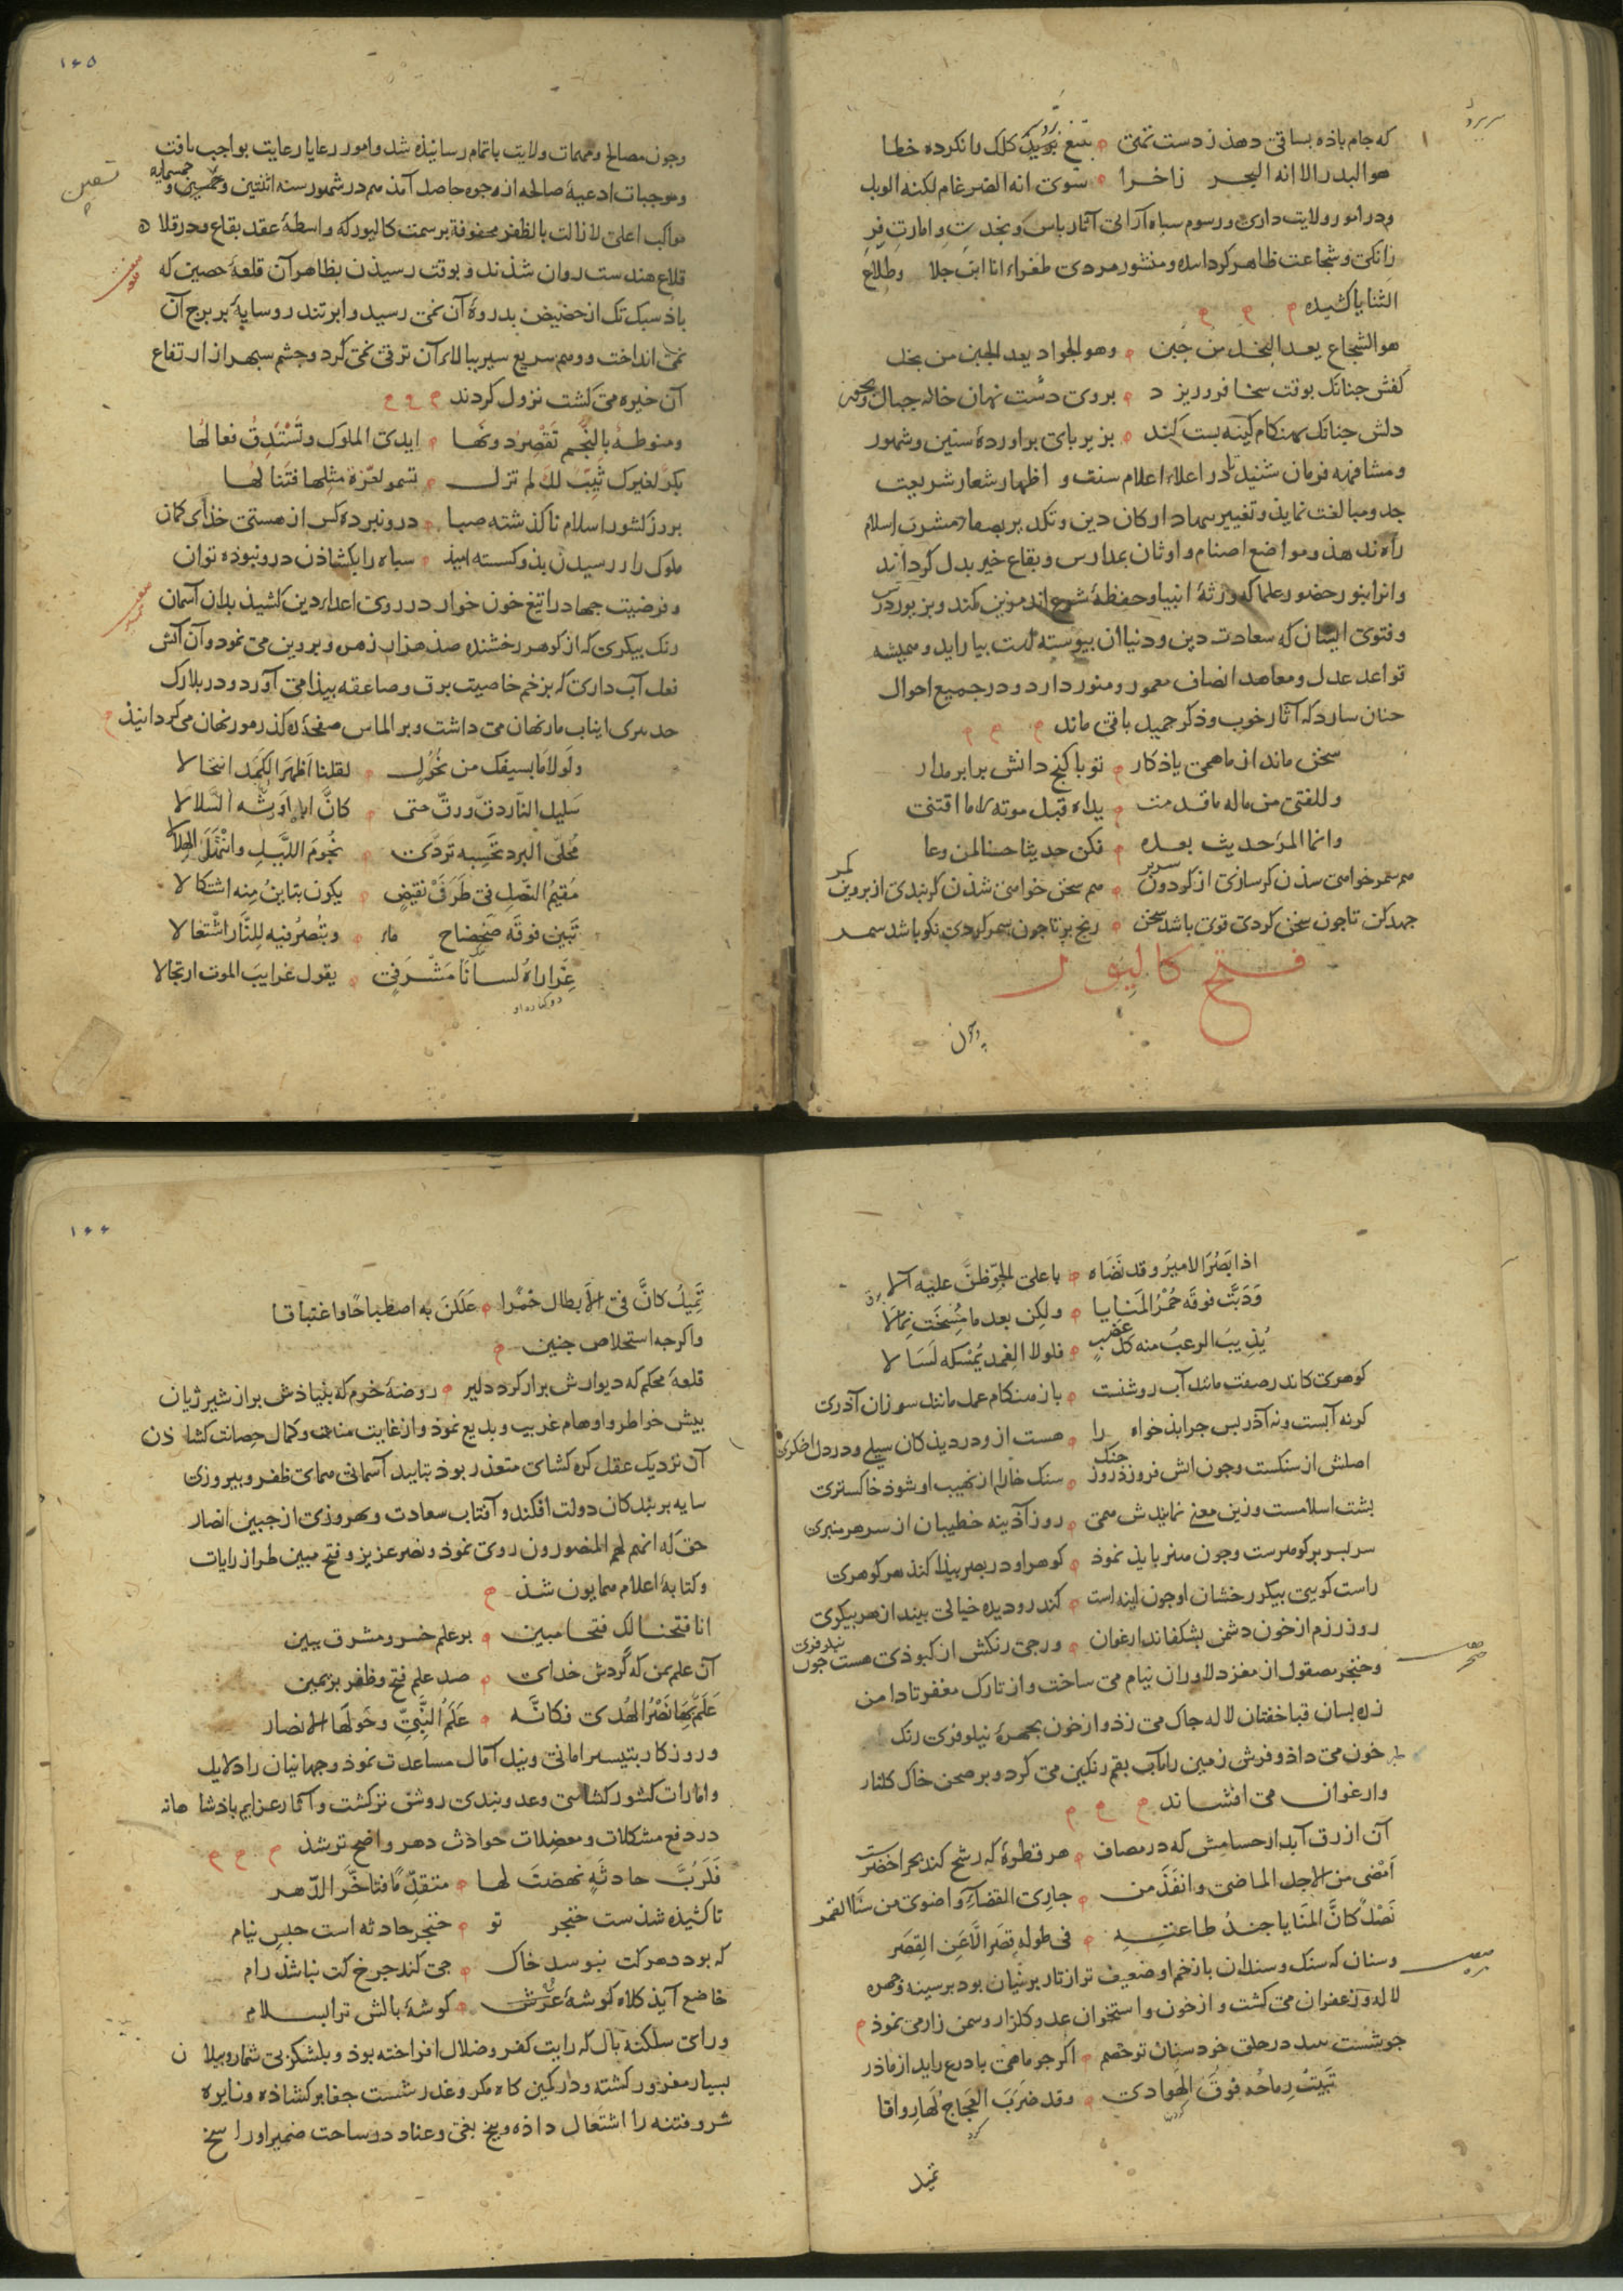 که جام باده بساقی دهد ز دست تمتی بتیغ کلک را نکرده خطا
هو البدر الا انه البحر زاخرا سوی انه الضرغام لکنه الوبل
ودر امور ولایت داری ورسوم سپاه آرائی آثار باس ونجدت وامارت فر
زانکی وشجاعت ظاهر کردانیده ومنشور مردی طغراء انا ابن جلا وطلاع
الثنایا کشیده
هو الشجاع یعد البخل من جبن وهو الجواد یعد الجبن من بخل
کفش جنانک بوقت سخا فرو ریزد بروی دشت نهان خانه جبال وبحور
دلش جنانک بهنکام کینه بست کند بزیر بای براورده سنین وشهور
ومشافهه فرمان شنید تا در اعلاء اعلام سنت و اظهار شعار شریعت
جد ومبالغت نماید وتغییر ارکان دین مشرب اسلام
راه ندهد ومواضع اصنام واوثان بمدارس وبقاع خیر بدل کرداند
وانرا بنور حضور علما که ورثۀ انبیا وحفظۀ شرع اند مزین کند وبزیور درس
وفتوی ایشان که سعادت دین ودنیا ان بیوسته است بیاراید وهمیشه
قواعد عدل ومعاهد انصاف معمور ومنور دارد ودر جمیع احوال
جنان سازد که آثار خوب وذکر جمیل باقی ماند
سخن ماند از ما همی یادکار تو با کنج دانش برابر مدار
وللفتی من ماله ما قدمت یداه قبل موته لا ما اقتنی
وانما المرء حدیث بعده فکن حدیثا حسنا لمن وعا
هم سمر خواهی شدن کر سازی از کردون سریر هم سخن خواهی شدن کر بندی از بروین کمر
جهد کن تا جون سخن کردی قوی باشد سخن رنج بر تا جون سمر کردی نکو باشد سمر
فتح کالیور
وجون
۱۶۵
وجون مصالح ومهمات ولایت باتمام رسانیده شد وامور رعایا رعایت بواجب یافت
وموجبات ادعیۀ صالحه از وجوه حاصل آمد هم در شهور سنه اثنتین وخمسمایه
تسعین
مواکب اعلی لا زالت بالظفر محفوفة بر سمت کالیور که واسطۀ عقد بقاع ودر قلا
قلاع هندست روان شدند وبوقت رسیدن بظاهر آن قلعۀ حصین که
باد سبک تک از حضیض بدروۀ آن نمی رسید وابر تند رو سایۀ بر برج آن
نمی انداخت ووهم سریع سیر ببالاء آن ترقی نمی کرد وجشم سپهر از ارتفاع
آن خیره می کشت نزول کردند
ومنوطة بالنجم تقصر دونها ایدی الملوک وتستدق فعالها
بکر لغیرک ثیب لک لم تزل تسمو لعزة مثلها فتنا لها
بروز کشور اسلام نا کذشته صبا درو نبرده کس از هستی خدای کمان
ملوک را ز رسیدن بدو کسسته امید سپاه را بکشادن درو نبوده توان
وفرضیت جهاد را تیغ خون خوار در روی اعداء دین کشید بدان آسمان
رنک بیکری که از کوهر رخشنده صد هزار زهره وبروین می نمود وآن آتش
نعل آب داری که بزخم خاصیت برق وصاعقه بیدا می آورد ودر بلارک
نهان می داشت وبر الماس صفحه ره کذر مور نهان می کردانید
ولولا ما بسیفک من نحول لقلنا اظهر الکمد انتحالا
سلیل النار دق ورق حتی کان اباه اورثه السلالا
محلی البرد تحسبه تردی نجوم اللیل وانتعل الهلالا
مقیم النصل فی طرفی نقیض یکون تباین منه اشتکالا
تبین فوقه ضحضاح ماء وتبصر فیه للنار اشتعالا
غراراه لسانا مشرفی یقول غرایب الموت ارتجالا
اذا بصر الامیر وقد نضاه باعلی الجو ظن علیه آلا
ودبت فوقه حمر المنایا ولکن بعد ما مسخت نمالا
یذیب الرعب منه کل عضب فلولا الغمد یمسکه لسالا
کوهری کاندر صفت مانند آب روشنست باز هنکام عمل مانند سوزان آذری
کرنه آبست ونه آذر بس جرا بدخواه را هست ازو در دیدکان سیلی ودر دل اخکری
اصلش از سنکست وجون اش فروزد روز جنک سنک خارا از نهیب او شود خاکستری
بشت اسلامست وزین معنی نمایندش همی روز آذینه خطیبان از سر هر منبری
سر بسر بر کوهرست وجون هنر باید نمود کوهر او در بصر بیدا کند هر کوهری
راست کویی بیکر رخشان او جون اینه است کندرو دیده خیالی بیند از هر بیکری
روز رزم از خون دشمن بشکفاند ارغوان ورجی رنکش از کبودی هست جون نیلوفری
وخنجر مصقول از مغز دلاوران نیام می ساخت واز تارک مغفر تا دامن
زره بسان قبا خفتان لاله جاک می زد واز خون بجهرۀ نیلوفری رنک
خون می داد وفرش زمین را باب بقم رنکین می کرد وبر صحن خاک کلنار
وارغوان می افشاند
آن ازرق آبدار حسامش که در مصاف هر قطرۀ که رشح کند بحر اخضرست
امضی من الاجل الماضی وانفذ من جاری القضاء واضوی من سنا القمر
نصل کان المنایا جند طاعته فی طوله قصر الا عن القصر
وسنان که سنک وسندان با زخم او ضعیف تر از تار برنیان بود بر سینه وجهره
لاله وزعفران می کشت واز خون واستخوان عدو کلزار وسمن زار می نمود
در حلق خود سنان تو خصم اکر جو ماهی با درع زاید از ماذر
تبیت رماحه فوق الهوادی وقد ضرب العجاج لها رواقا
تمیل
۱۶۶
تمیل کان فی الابطال خمرا عللن به اصطباحا واغتباقا
واکرجه استخلاص جنین
قلعۀ محکم که دیوارش برار کرد دلیر روضۀ خرم که بنیادش براز شیر ژیان
بیش خواطر واوهام غریب وبدیع نمود واز غایت مناعت وکمال حصانت کشادن
آن نزدیک عقل کره کشای متعذر بود بتایید آسمانی همای ظفر وبیروزی
سایه بر بندکان دولت افکند وآفتاب سعادت وبهروزی از جبین انصار
حق که انهم لهم المنصورون روی نمود ونصر عزیز وفتح مبین طراز رایات
وکتابۀ اعلام همایون شد
انا فتحنا لک فتحا مبین بر علم خسرو مشرق ببین
آن علم بمن که کردش خدای صد علم فتح وظفر بر یمین
علم بها نصر الهدی فکانه علم النبی وحولها الانصار
وروزکار بتیسر امانی ونیل آمال مساعدت نمود وجهانیان را دلایل
وامارات کشور کشائی وعدو بندی روشن تر کشت وآثار عزایم بادشاهانه
در دفع مشکلات ومعضلات حوادث دهر واضح تر شد
فلرب حادثة نهضت لها متقدما فتاخر الدهر
تا کشیده شدست خنجر تو خنجر حادثه است حبس نیام
که بود دهر کت نبوسد خاک جی کند جرخ کت نباشد رام
خاضع آید کلاه کوشۀ عرش کوشۀ بالش ترا بسلام
ورای سلکنه بال که رایت کفر وضلال افراخته بود وبلشکر بی شمار وبیلان
بسیار مغرور کشته ودر کمین کاه مکر وغدر شست جفا بر کشاده ونایره
شر وفتنه را اشتعال داده وبیخ بغی وعناد در ساحت ضمیر او راسخ